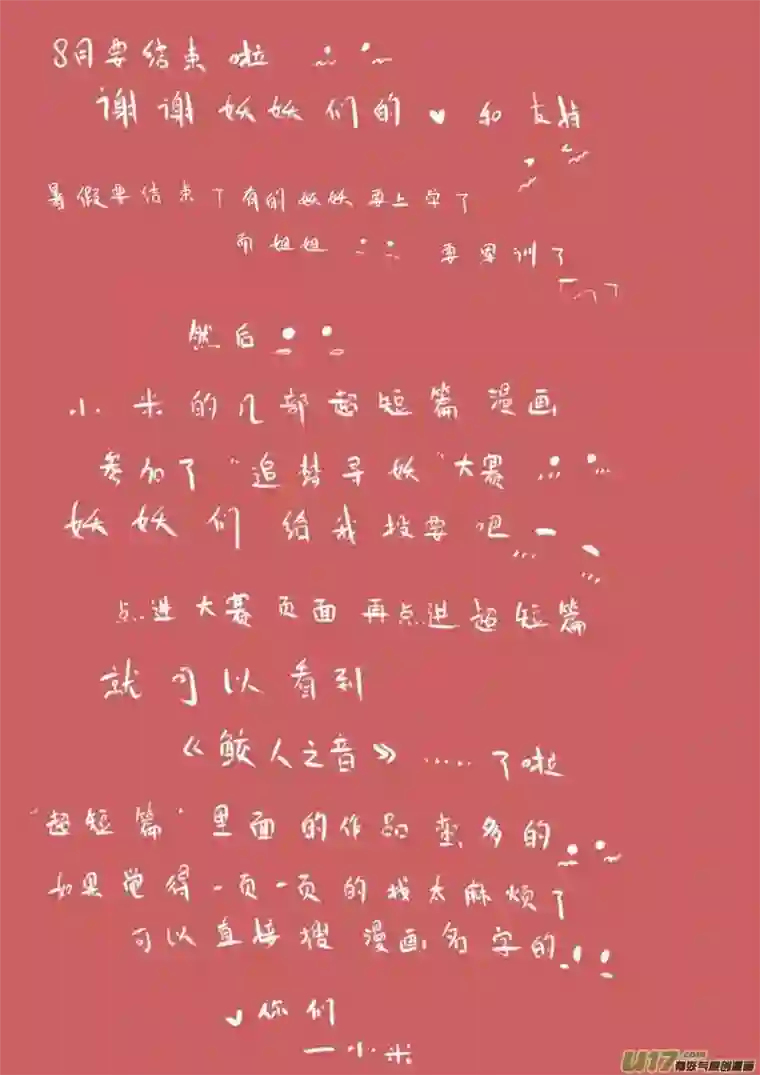 8月要结束啦
谢谢妖妖们的♥和支持
暑假要结束了有的妖妖要上学了
而姐姐 要军训了
然后
小米的几部超短篇漫画
参加了“追梦寻妖”大赛
妖妖们给我投票吧
点进大赛页面再点进超短篇
就可以看到
《鲛人之音》……了啦
“超短篇”里面的作品蛮多的
如果觉得一页一页的找太麻烦了
可以直接搜漫画名字的
♥你们
—小米
U17.com
有妖气原创漫画